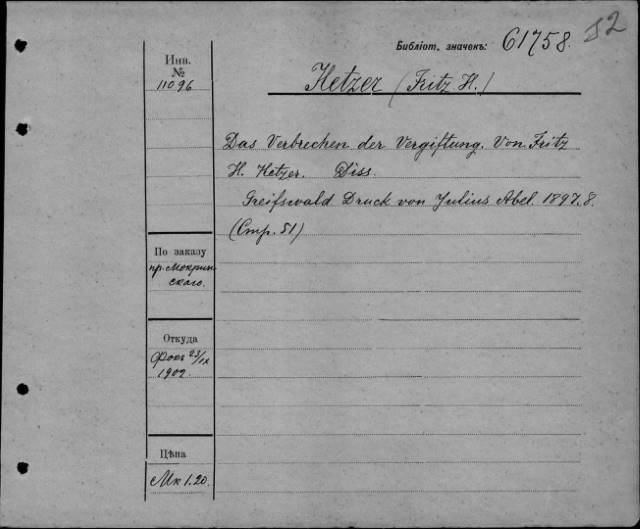 Библіот. значекъ: 61758.
52
Инв.
№
11096
Hetzer (Fritz H.)
Das Verbrechen der Vergiftung. Von Fritz
H. Hetzer. Diss.
Greifswald Druck von Julius Abel. 1897. 8.
(Стр. 51)
По заказу
пр. Мокрин-
скаго.
Откуда
Фокъ 23/IX
1902.
Цѣна
Мк 1.20.